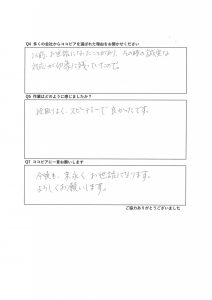 Q4 多くの会社からココピアを選ばれた理由をお聞かせください
以前、お世話になったことがあり、その時の誠実な
対応が印象に残っていたので。
Q5 作業はどのように感じましたか？
段取りよく、スピーディーで良かったです。
Q7 ココピアに一言お願いします
今後も、末永くお世話になります。
よろしくお願いします。
ご協力ありがとうございました